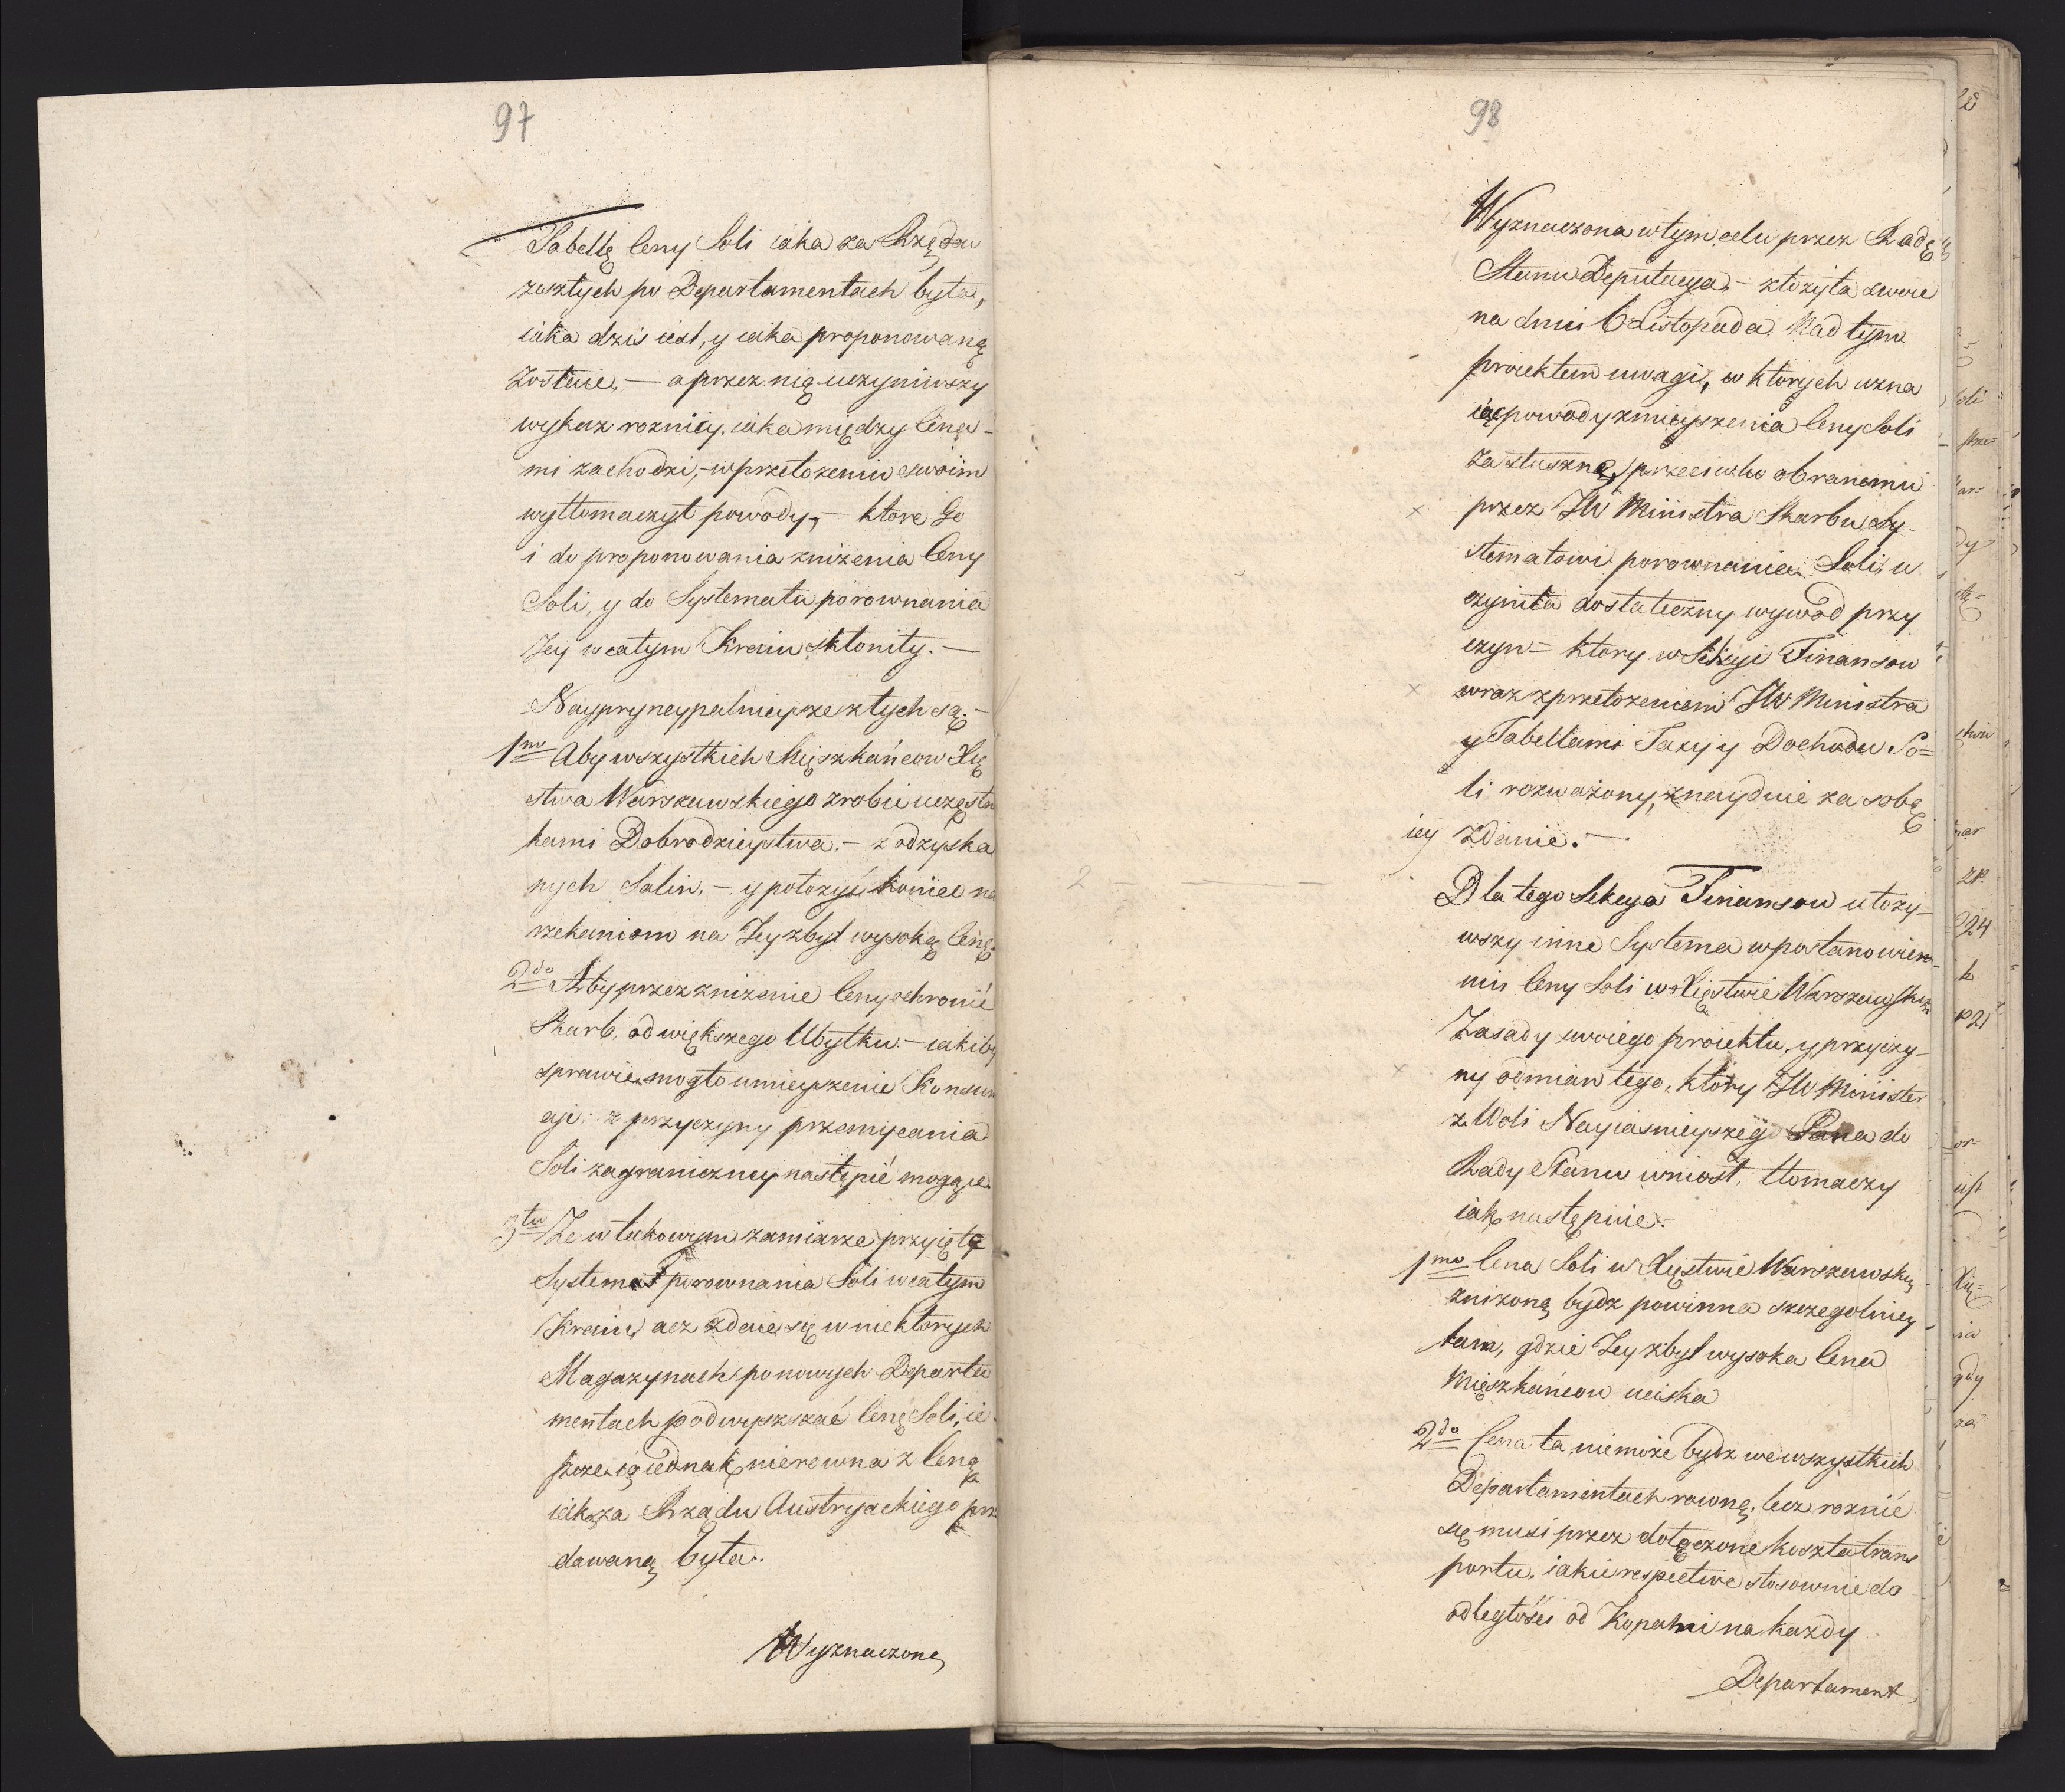 97
Tabellę Ceny Soli iaka za Rządu
zeszłych po Departamentach była,
iaka dziś iest, y iaka proponowaną
zostaie, — a przez nią uczyniwszy
wykaz roznicy, iaka między Cena-
mi zachodzi, - w przełożeniu swoim
wytłomaczył powody, — ktore Go
i do proponowania zniżenia Ceny
Soli, y do Systematu porownania
Jey w całym Kraiu skłoniły. —
Naypryncypalnieysze z tych są: —
1mo Aby wszystkich Mięszkańcow Xię
stwa Warszawskiego zrobić uczestni
kami Dobrodzieystwa. — z odzyska
nych Salin, — y położyć koniec na
rzekaniom na Jey zbyt wysoką Cenę.
2do Aby przez zniżenie Ceny ochronić
Skarb, od większego Ubytku. — iakiby
sprawić mogło umieyszenie Konsum
cyi: z przyczyny przemycania
Soli zagraniczney nastąpić mogące.
3tio Ze w takowym zamiarze przyięte
Systema porownania Soli w całym
Kraiu, acz zdaie się w niektorych
Magazynach po nowych Departa
mentach podwyższać Cenę Soli, ie
szcze ią iednak nierowna z Ceną
iaka za Rządu Austryackiego prze
dawaną była.
Wyznaczona
98
Wyznaczona w tym celu przez Radę
Stanu Deputacya, — złożyła swoie
na dniu 6 Listopada Nad tym
proiektem uwagi, w ktorych uzna
iąc powody zmieyszenia Ceny Soli
za słuszne, przeciwko obranemu
× przez JW Ministra Skarbu Sy-
stematowi porownania Soli, u
czyniła dostateczny wywod przy
czyn = ktory w Sekcyi Finansow
× wraz z przełożeniem JW Ministra
y Tabellami Taxy y Dochodu So=
li rozważony, znayduie za sobą
iey zdanie. —
2 — — — —
Dla tego Sekcya Finansow ułoży-
wszy inne Systema w postanowie-
niu Ceny Soli w Xięstwie Warszawskim
Zasady swoiego proiektu, y przyczy-
× ny odmian tego, ktory JW Minister
z Woli Nayiasnieyszego Pana do
Rady Stanu wniosł, tłomaczy
iak następuie. -
1mo Cena Soli w Xięstwie Warszawskim
zniżoną bydz powinna szczegolniey
tam, gdzie Jey zbyt wysoka Cena
Mięszkańcow uciska
2do Cena ta nie może bydz we wszystkich
Departamentach rowną, lecz roznić
się musi przez dołączone koszta trans
portu, iakie respective stosownie do
odległości od Kopalni na każdy
Departament